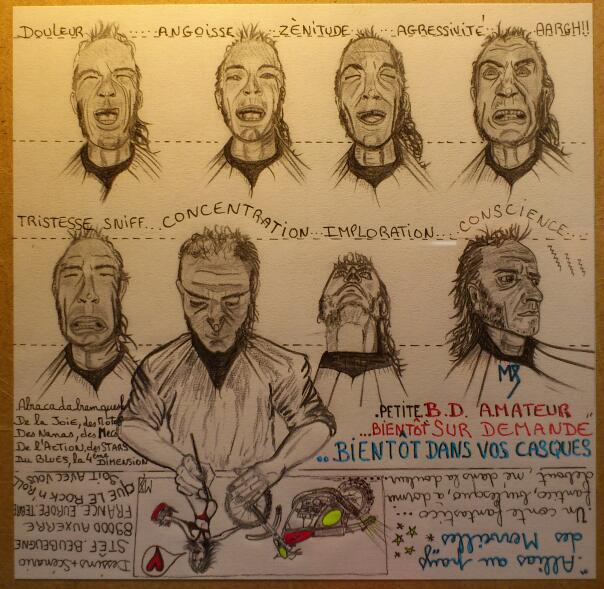 DOULEUR... ANGOISSE ZÈNITUDE AGRESSIVITÉ AARGH!!
TRISTESSE SNIFF...CONCENTRATION...IMPLORATION...CONSCIENCE...
MB
PETITE B.D. AMATEUR
...BIENTÔT SUR DEMANDE
...BIENTÔT DANS VOS CASQUES
De la Joie, des Motos
Des Nanas, des Mecs
De l'Action, des STARS
Du BLUES, la 4ème DIMENSION
"Allias au pays
des Merveilles"
Un conte fantastico
burlesque, a dormir
debout, me dans la douleur...
Dessins + Scénario
STÉF. BEUBEUGNE
89000 AUXERRE
FRANCE EUROPE TERRE
QUE LE ROCK'N ROLL
SOIT AVEC VOUS
MB